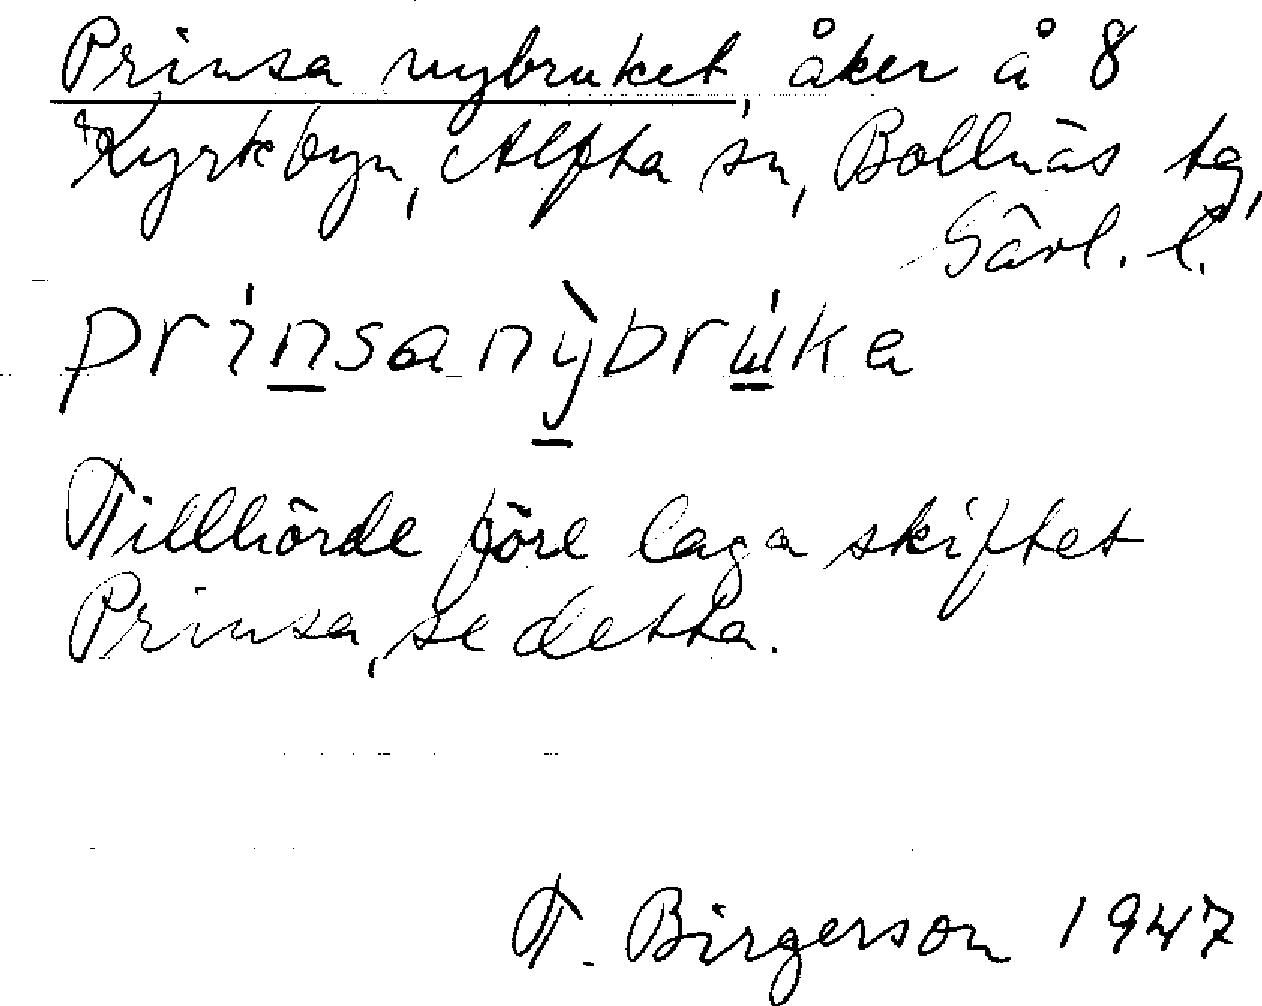 Prinsa nybruket, åker å 8
Kyrkbyn, Alfta sn, Bollnäs tg,
Gävl. l.
prinsanỳbrúka
Tillhörde före laga skiftet
Prinsa, se detta.
T. Birgerson 1947